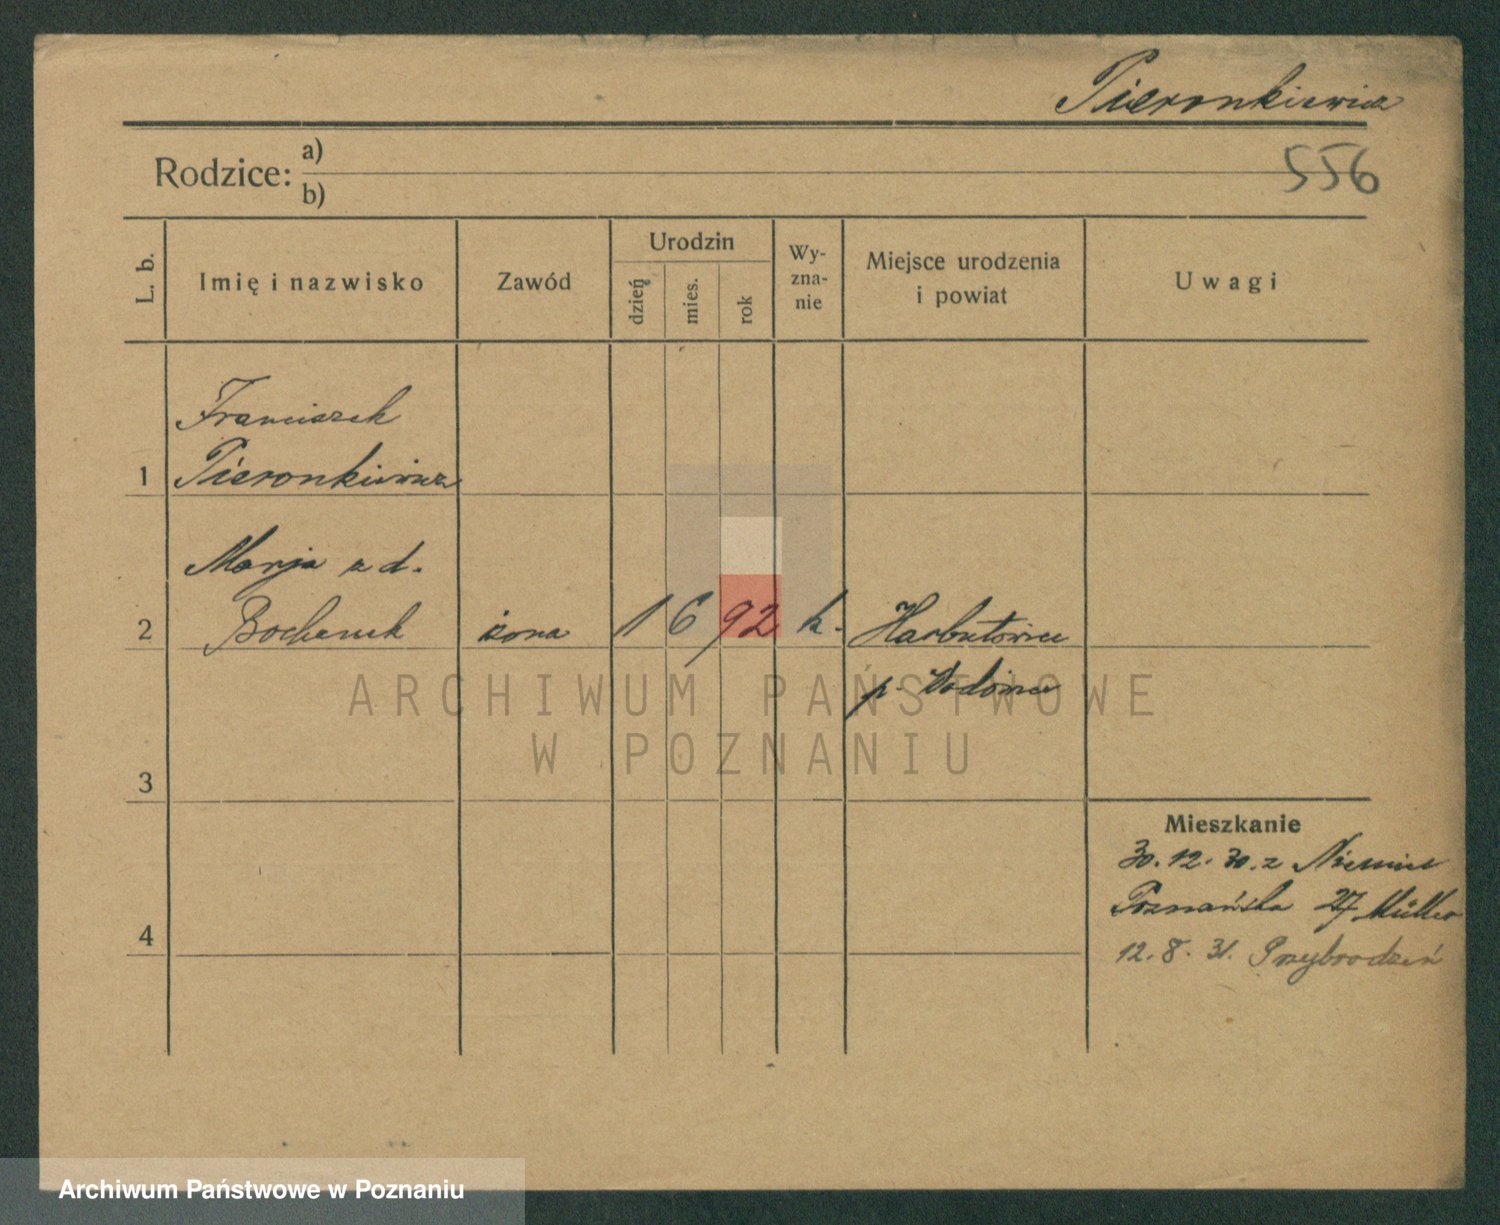 Pieronkiewicz
Rodzice: a)
b)
556
L. b.
Imię i nazwisko
Zawód
Urodzin
dzień
mies.
rok
Wy-
zna-
nie
Miejsce urodzenia
i powiat
Uwagi
Franciszek
1 Pieronkiewicz
Marja z d.
2 Bochenek żona 1 6 92 k. Harbutowice
p. Wadowice
ARCHIWUM PAŃSTWOWE
W POZNANIU
3
Mieszkanie
30.12.30. z Niemiec
Poznańska 27 Müller
4
12.8.31. Przybrodzin
Archiwum Państwowe w Poznaniu